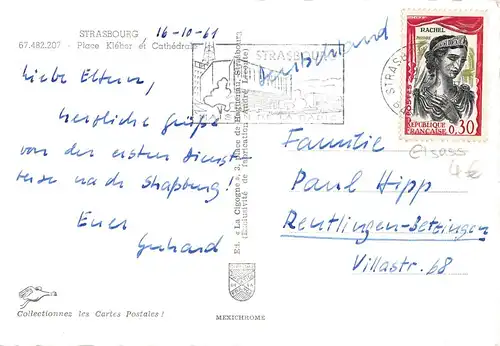 STRASBOURG
16-10-61
67.482.207 - Place Kléber et Cathédrale
Liebe Eltern,
herzliche Grüße
von der ersten Dienst-
reise nach Straßburg!
Euer
Gerhard
Collectionnez les Cartes Postales !
Ed. « La Cigogne », 3, place de Haguenau, Strasbourg
(Exclusivité de fabrication André Leconte)
MEXICHROME
STRASBOURG
Deutschland
STRASB
RACHEL
POSTES
RÉPUBLIQUE
FRANÇAISE
0,30
Elsass
4 €
Familie
Paul Hipp
Reutlingen-Betzingen
Villastr. 68